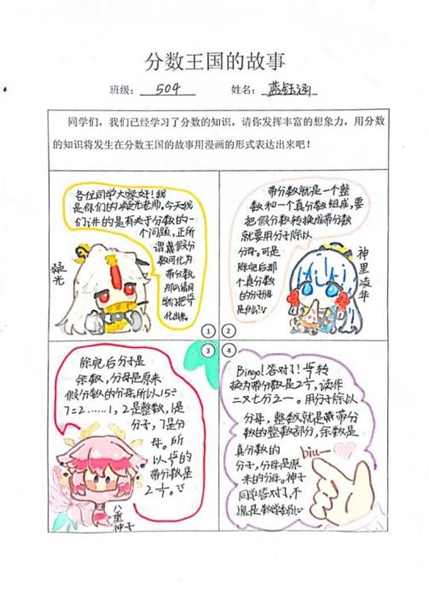 分数王国的故事
班级: 504 姓名: 蓝钰涵
同学们，我们已经学习了分数的知识，请你发挥丰富的想象力，用分数
的知识将发生在分数王国的故事用漫画的形式表达出来吧！
各位同学大家好！我
是你们的凝光老师。今天我
们讲的是有关于分数的一
个问题，正所
谓真假分
数可化为
带分数
化出来。
凝光
①
带分数就是一个整
数和一个真分数组成，要
把假分数转换成带分数
就要用分子除以
分母。可是
除完后那
个真分数
的分子分母
是什么？
神里凌华
②
除完后分子是
余数，分母是原来
假分数的分母。所以15÷
7=2……1，2是整数，1是
分子，7是分
母。所
以15/7的
带分数是
2 1/7。
八重神子
③
Bingo！答对了！15/7转
换为带分数是2 1/7，读作
二又七分之一。用分子除以
分母，整数就是带分
数的整数部分，余数是
真分数的
分子，分母是原
来的分母。神子
同学答对了，不
愧是
biu~
④